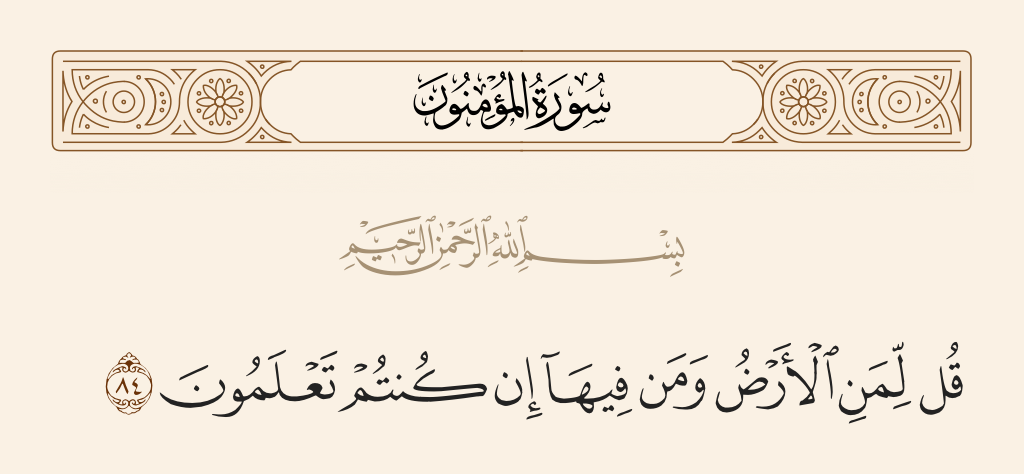 سُورَةُ المُؤْمِنُونَ
بِسْمِ ٱللَّهِ ٱلرَّحْمَٰنِ ٱلرَّحِيمِ
قُل لِّمَنِ ٱلْأَرْضُ وَمَن فِيهَآ إِن كُنتُمْ تَعْلَمُونَ ٨٤